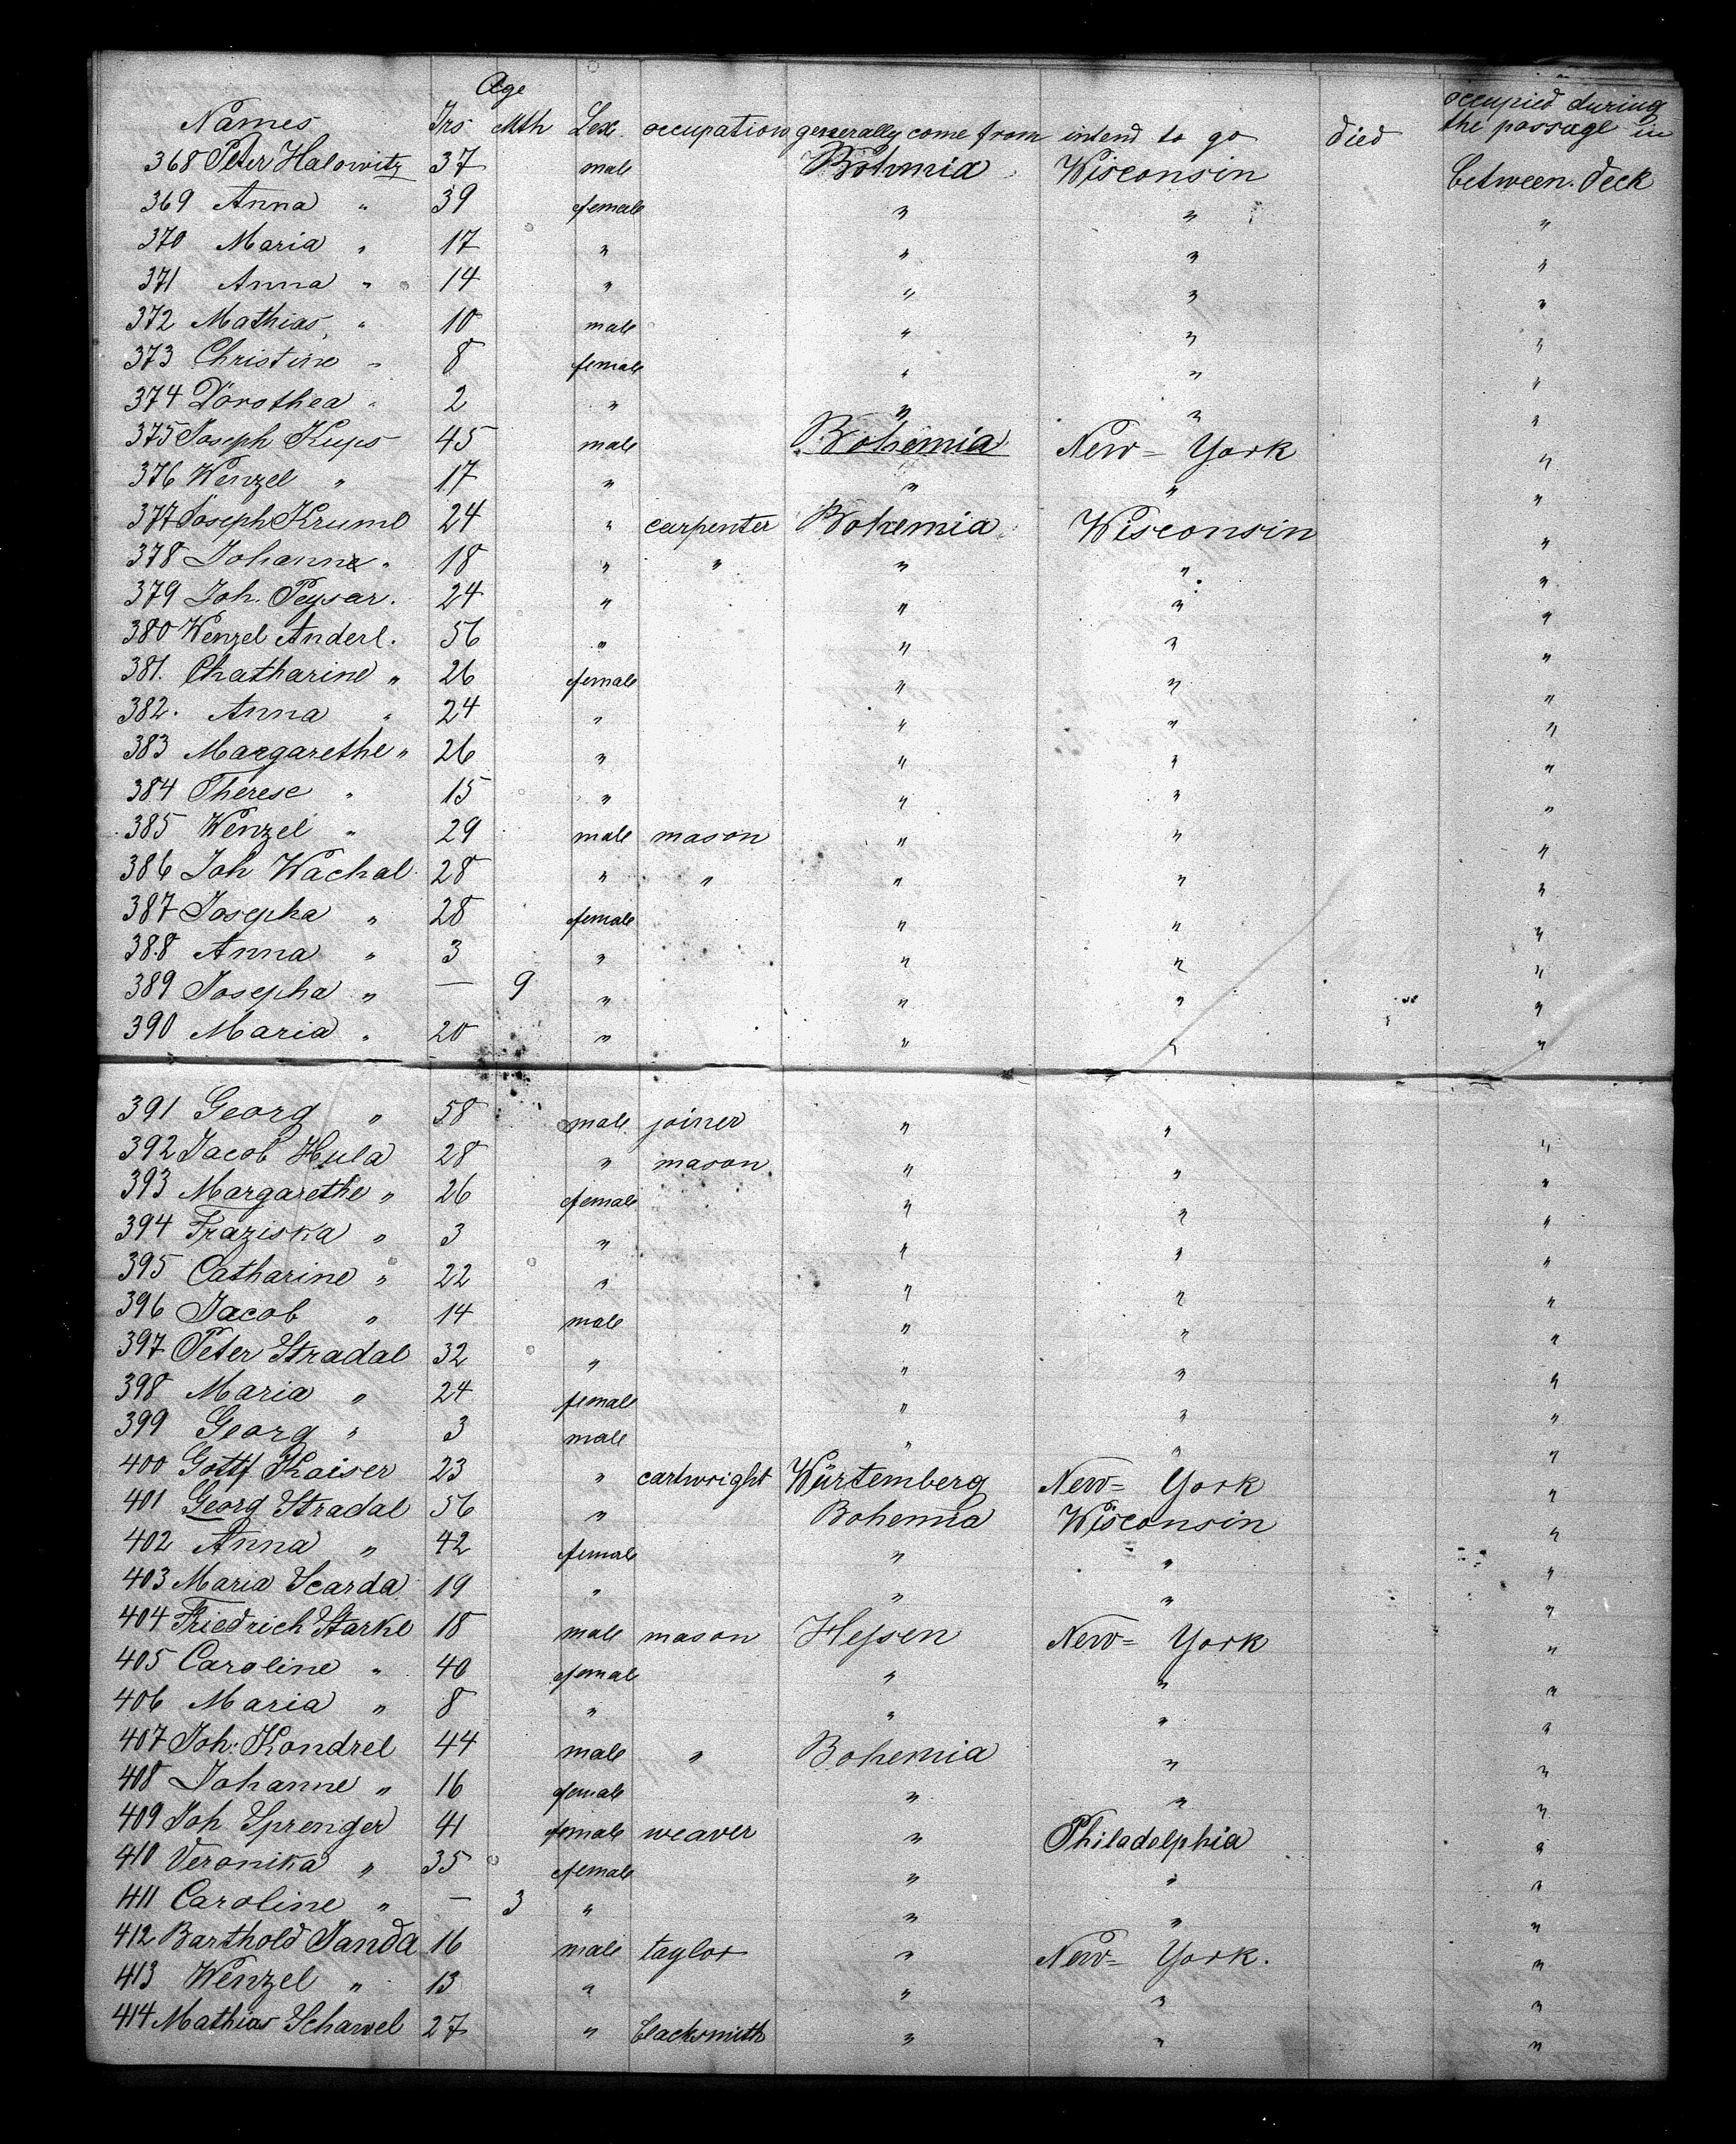 Age
Names Yrs Mth Sex occupation generally come from intend to go died occupied during the passage in
368 Peter Halowitz 37 male Bohmia Wisconsin between deck
369 Anna " 39 female " " "
370 Maria " 17 " " " "
371 Anna " 14 " " " "
372 Mathias " 10 male " " "
373 Christine " 8 female " " "
374 Dorothea " 2 " " " "
375 Joseph Kups 45 male Bohemia New-York "
376 Wenzel " 17 " " " "
377 Joseph Kruml 24 " carpenter Bohemia Wisconsin "
378 Johann " 18 " " " " "
379 Joh. Peysar. 24 " " " "
380 Wenzel Anderl. 56 " " " "
381. Chatharine " 26 female " " "
382. Anna " 24 " " " "
383 Margarethe " 26 " " " "
384 Therese " 15 " " " "
385 Wenzel " 29 male mason " " "
386 Joh Wachal 28 " " " " "
387 Josepha " 28 female " " "
388 Anna " 3 " " " "
389 Josepha " — 9 " " " "
390 Maria " 20 " " " "
391 Georg " 58 male joiner " " "
392 Jacob Hula 28 " mason " " "
393 Margarethe " 26 female " " "
394 Fraziska " 3 " " " "
395 Catharine " 22 " " " "
396 Jacob " 14 male " " "
397 Peter Stradal 32 " " " "
398 Maria " 24 female " " "
399 Georg " 3 male " " "
400 Gottf Kaiser 23 " cartwright Würtemberg New=York "
401 Georg Stradal 56 " Bohemia Wisconsin "
402 Anna " 42 female " " "
403 Maria Scarda 19 " " " "
404 Friedrich Starke 18 male mason Hessen New=York "
405 Caroline " 40 female " " "
406 Maria " 8 " " " "
407 Joh: Kondrel 44 male " Bohemia " "
408 Johanne " 16 female " " "
409 Joh Sprenger 41 female weaver " Philadelphia "
410 Veronika " 35 female " " "
411 Caroline " — 3 " " " "
412 Barthold Janda 16 male taylor " New=York. "
413 Wenzel " 13 " " " "
414 Mathias Schawel 27 " blacksmith " " "